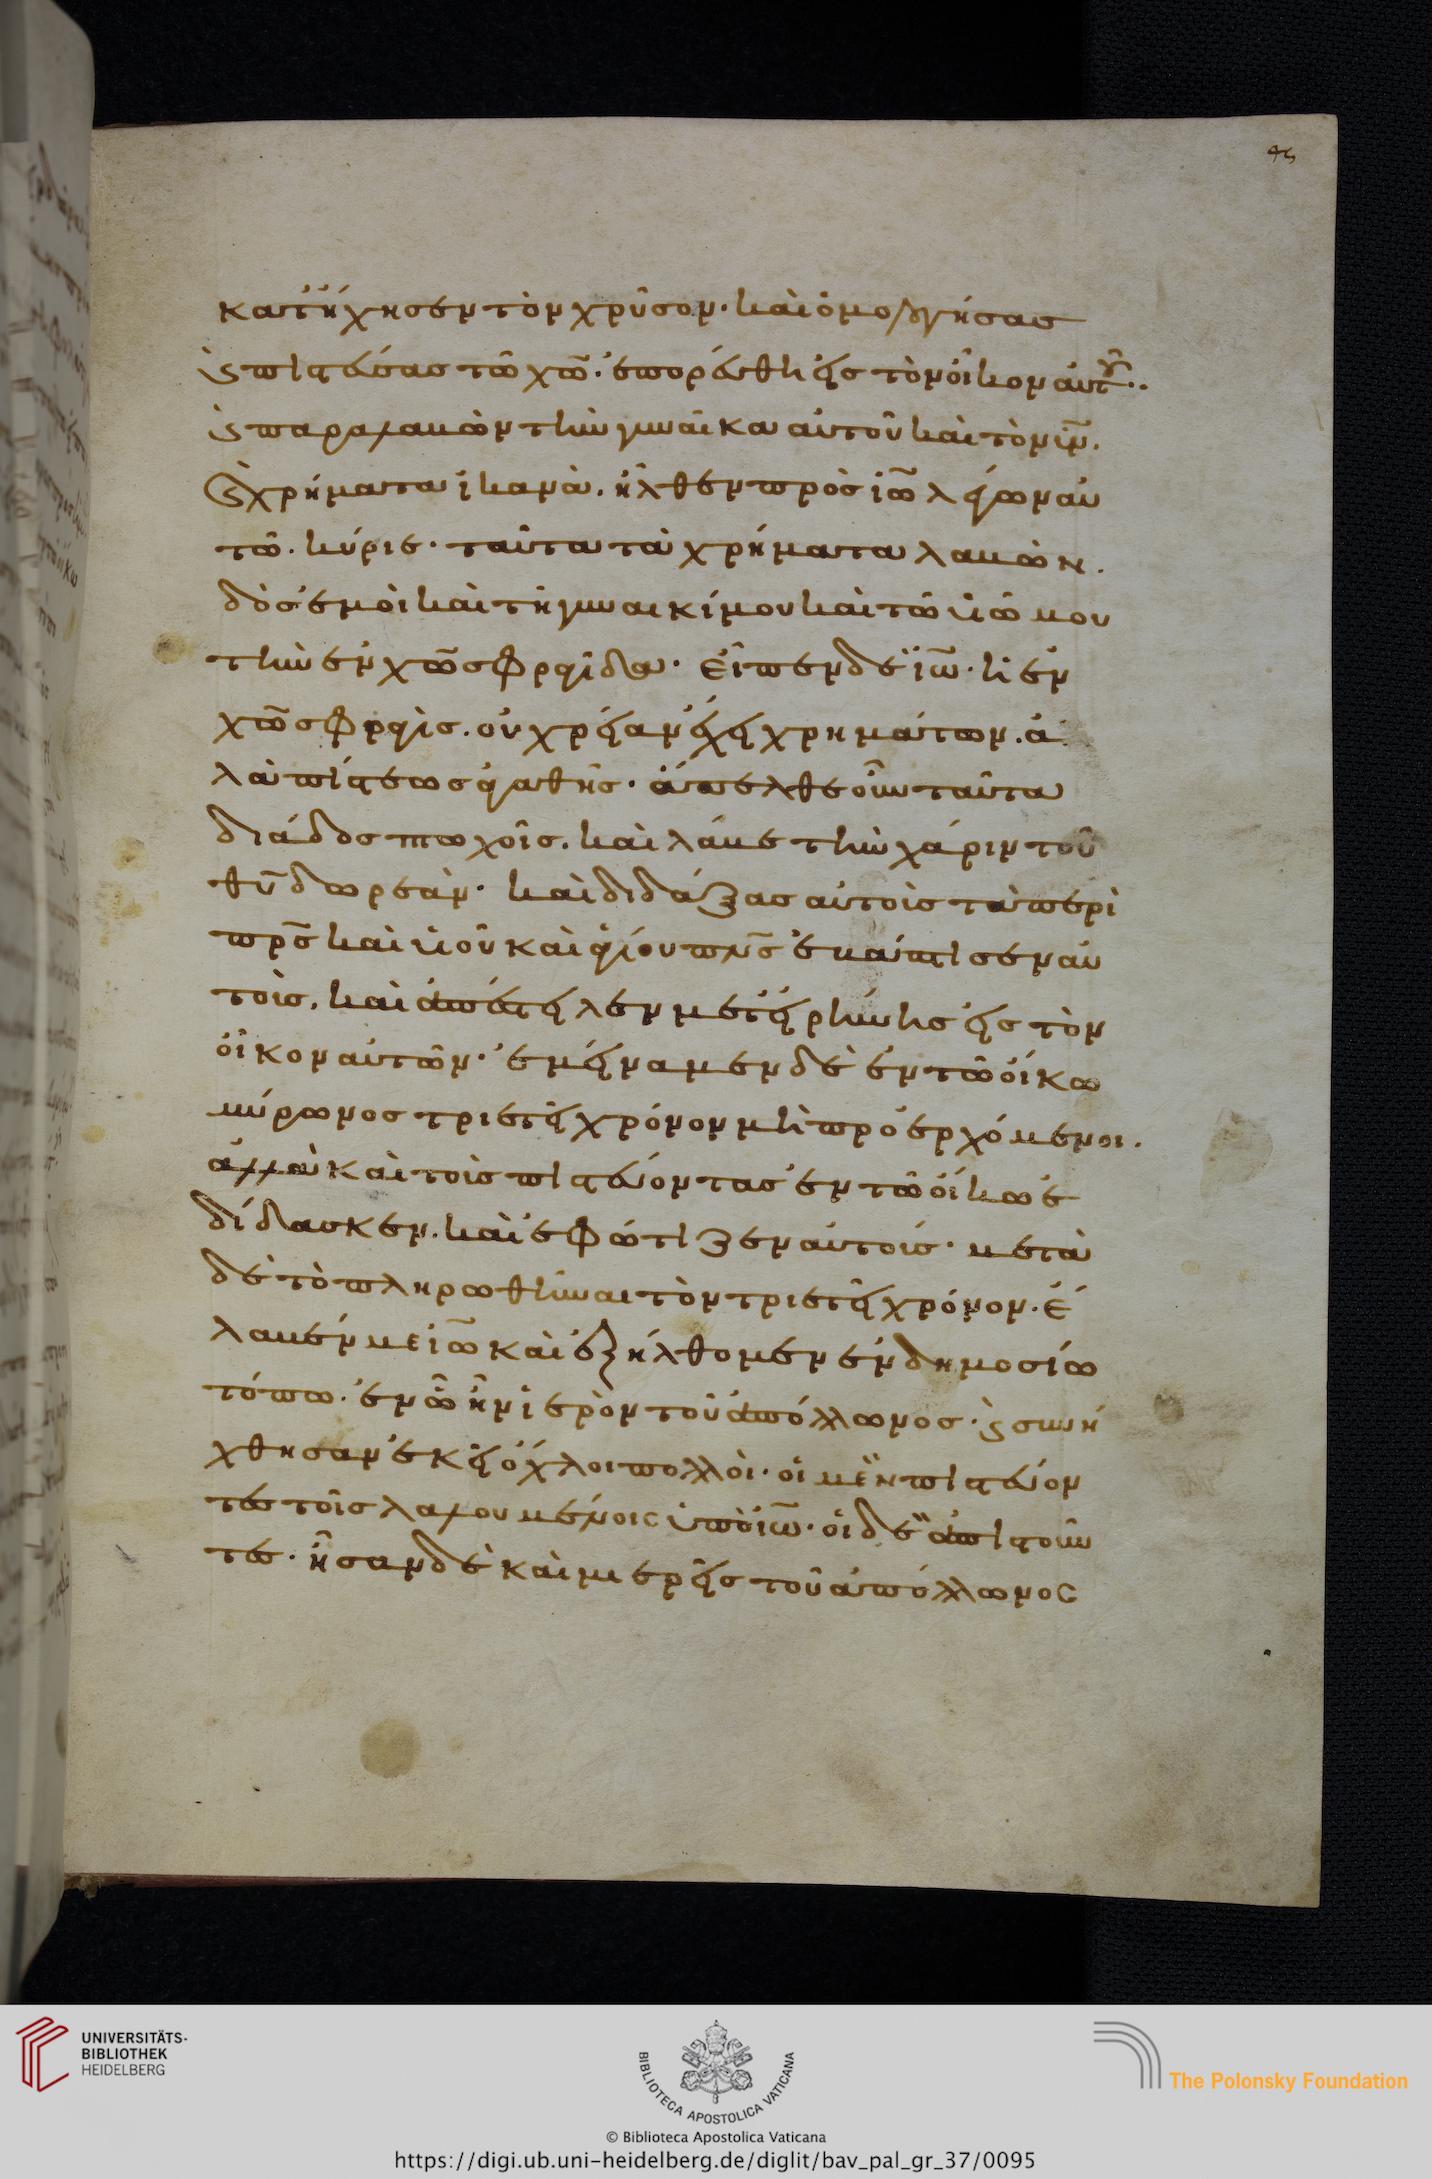 46
κατήχησεν τὸν χρῦσον· καὶ ὁμολογήσας
ϛ πιστεύσας τῶ χω̅· ἐπορεύθη εἰς τὸν οἶκον αὐτοῦ··
ϛ παραλαβὼν τὴν γυναῖκα αὐτοῦ καὶ τὸν υι̅ν·
ϛ χρήματα ἱκανὰ· ἦλθεν πρὸς ιω̅ λέγων αὐ
τῶ· κύριε· ταῦτα τὰ χρήματα λαβὼν·
δὸς ἐμοὶ καὶ τῆ γυναικί μου καὶ τῶ υἱῶ μου
τὴν ἐν χω̅ σφραγῖδα· εἶπεν δὲ ιω̅· ἡ ἐν
χω̅ σφραγὶς· οὐ χρείαν ἔχει χρημάτων· ἀλ
λὰ πίστεως ἀγαθῆς· ἄπελθε οὖν ταῦτα
διάδος πτωχοῖς· καὶ λάβε τὴν χάριν τοῦ
θυ̅ δωρεὰν· καὶ διδάξας αὐτοὶς τὰ περὶ
πρ̅ς καὶ υἱοῦ καὶ ἁγίου πν̅ς ἐβάπτισεν αὐ
τοὶς· καὶ ἀπέστειλεν μετ' εἰρήνης εἰς τὸν
οἶκον αὐτῶν· ἐμείναμεν δὲ ἐν τῶ οἴκω
μύρωνος τριετῆ χρόνον μὴ προερχόμενοι·
ἀλλὰ καὶ τοὶς πιστεύοντας ἐν τῶ οἴκω ἐ
δίδασκεν· καὶ ἐφώτιζεν αὐτοίς· μετὰ
δὲ τὸ πληρωθῆναι τὸν τριετῆ χρόνον· ἔ
λαβέν με ιω̅ καὶ ἐξήλθομεν ἐν δημοσίω
τόπω· ἐν ὧ ἦν ἱερὸν τοῦ ἀπόλλωνος· ϛ συνή
χθησαν ἐκεῖ ὄχλοι πολλοὶ· οἱ μὲν πιστεύον
τες τοῖς λαλουμένοις ὑπὸ ιω̅· οἱ δὲ ἀπιστοῦν
τες· ἦσαν δὲ καὶ ἱερεῖς τοῦ ἀπόλλωνος
UNIVERSITÄTS-
BIBLIOTHEK
HEIDELBERG
BIBLIOTECA APOSTOLICA VATICANA
The Polonsky Foundation
© Biblioteca Apostolica Vaticana
https://digi.ub.uni-heidelberg.de/diglit/bav_pal_gr_37/0095